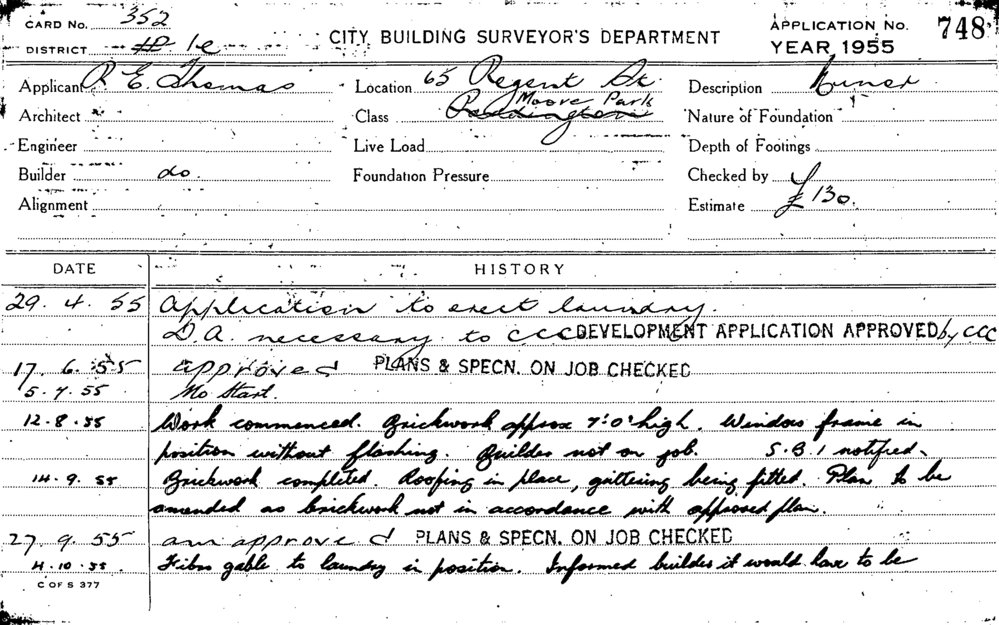 CARD No. 352
DISTRICT 1e
CITY BUILDING SURVEYOR'S DEPARTMENT
APPLICATION No. 748
YEAR 1955
Applicant R E Thomas
Location 65 Regent St.
Description Minor
Architect
Moore Park
Class Paddington
Nature of Foundation
Engineer
Live Load
Depth of Footings
Builder do.
Foundation Pressure
Checked by
Alignment
Estimate £130.
DATE HISTORY
29. 4. 55 Application to erect laundry.
D.A. necessary to CCC DEVELOPMENT APPLICATION APPROVED by CCC
17. 6. 55 approved PLANS & SPECN. ON JOB CHECKED
5. 7. 55 No Start.
12.8.55 Work commenced. Brickwork approx 7'0" high. Window frame in
position without flashing. Builder not on job. S.B.I notified.
14.9.55 Brickwork completed. Roofing in place, guttering being fitted. Plan to be
amended as brickwork not in accordance with approved plan.
27. 9. 55 am approved PLANS & SPECN. ON JOB CHECKED
4.10.55 Fibro gable to laundry in position. Informed builder it would have to be
C OF S 377